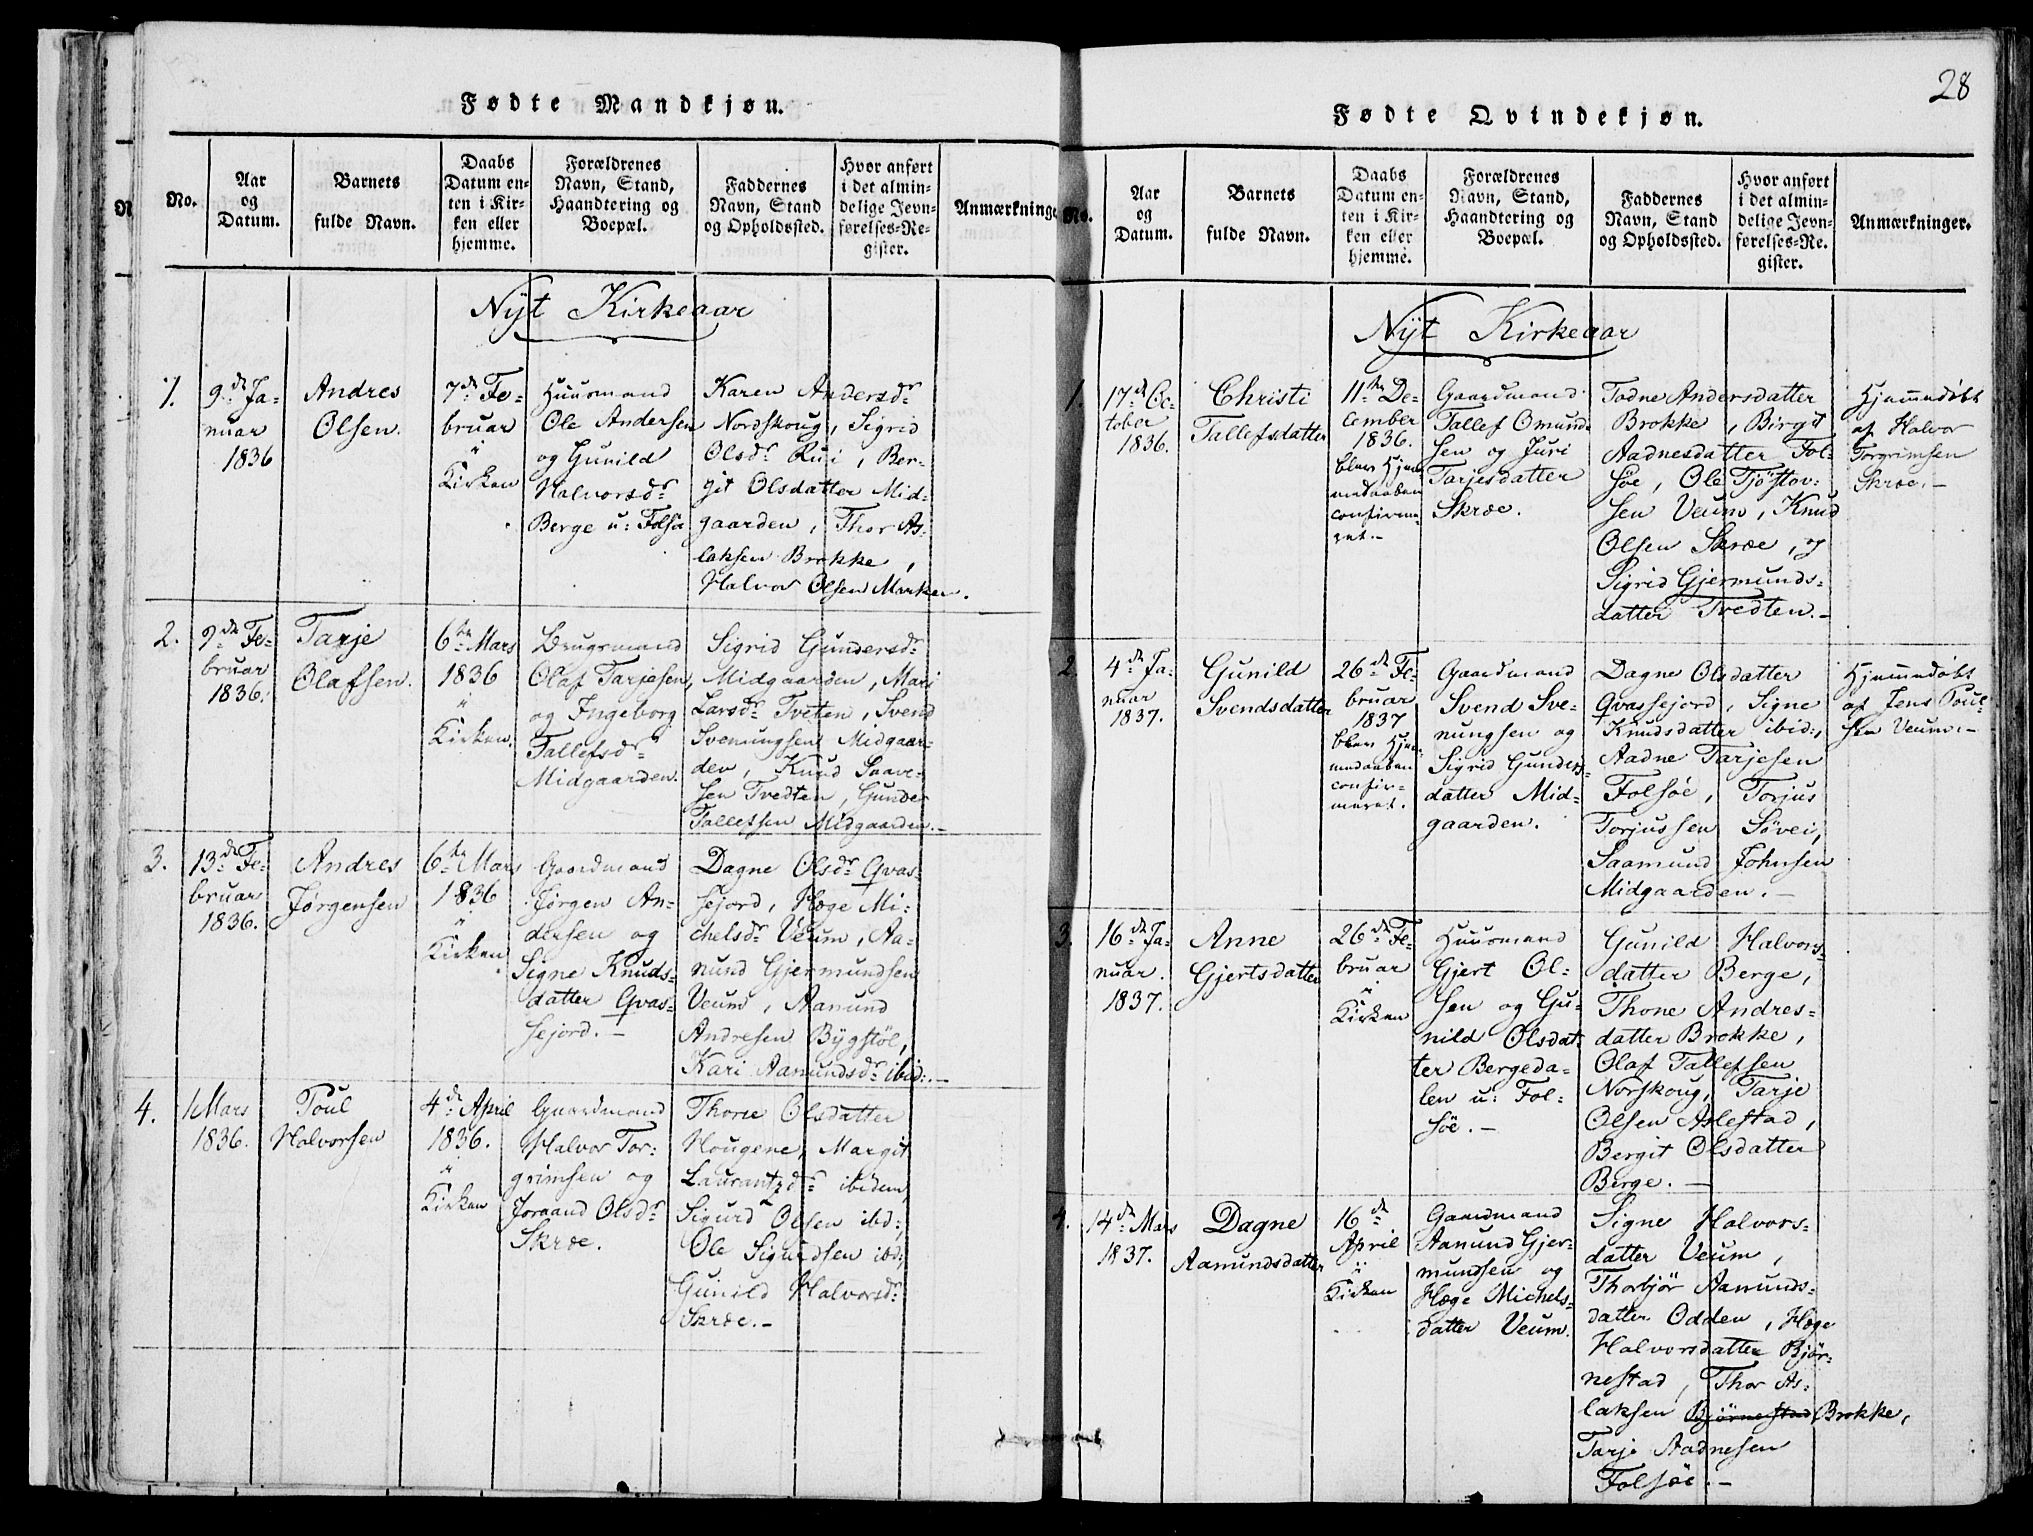 Fødte Mandkjøn.
No.
Aar
og
Datum.
Barnets
fulde Navn.
Daabs
Datum en-
ten i Kir-
ken eller
hjemme.
Forældrenes
Navn, Stand,
Haandtering og
Boepæl.
Faddernes
Navn, Stand
og Opholdssted.
Hvor anført
i det almin-
delige Jevn-
førelses-Re-
gister.
Anmærkninge
Nÿt Kirkeaar
1.
9de Ja-
nuar
1836
Andres
Olsen.
7de Fe-
bruar
i
Kirken
Huusmand
Ole Andersen
og Gunild
Halvorsdr
Berge u: Folsøe
Karen Andersdr
Nordskoug, Sigrid
Olsdr Rui, Ber-
git Olsdatter Mid-
gaarden, Thor As-
laksen Brokke,
Halvor Olsen Marken.
2.
9de Fe-
bruar
1836.
Tarje
Olafsen.
6te Mars
1836
i
Kirken.
Brugsmand
Olaf Tarjesen,
og Ingeborg
Tallefsdr
Midgaarden.
Sigrid Gundersdr
Midgaarden, Mari
Larsdr Tveten, Svend
Svenungsen Midgaar-
den, Knud Saave-
sen Tvedten, Gunder
Tallefsen Midgaarden.-
3.
13de Fe-
bruar
1836.
Andres
Jørgensen
6te Mars
1836
i
Kirken
Gaardmand
Jørgen An-
dersen og
Signe Knuds-
datter Qvas-
sejord.-
Dagne Olsdr Qvas-
sejord, Hæge Mi-
chelsdr Veum, Aa-
nund Gjermundsen
Veum, Aanund
Andresen Bÿgstöl,
Kari Aanundsdr ibid:.-
4.
1 Mars
1836.
Poul
Halvorsen
4de April
1836.
i
Kirken
Gaardmand
Halvor Tor-
grimsen og
Joraand Olsdr
Skræ.
Thone Olsdatter
Hougene, Margit
Laurantzdr ibidem,
Sigurd Olsen ibd:,
Ole Sigurdsen ibd:,
Gunild Halvorsdr
Skræe.-
28
Fødte Qvindekjøn.
No.
Aar
og
Datum.
Barnets
fulde Navn.
Daabs
Datum en-
ten i Kir-
ken eller
hjemme.
Forældrenes
Navn, Stand,
Haandtering og
Boepæl.
Faddernes
Navn, Stand
og Opholdssted.
Hvor anført
i det almin-
delige Jevn-
førelses-Re-
gister.
Anmærkninger.
Nÿt Kirkeaar
1.
17de Oc-
tober
1836.
Christi
Tallefsdatter
11te De-
cember
1836.
blev Hjem-
medaaben
confirme-
ret.-
Gaardmand
Tallef Omund-
sen og Juri
Tarjesdatter
Skræe.
Todne Andersdatter
Brokke, Birgit
Aadnesdatter Fol-
søe, Ole Tjöstov-
sen Veum, Knud
Olsen Skræe, og
Sigrid Gjermunds-
datter Tvedten.-
Hjemmedöbt
af Halvor
Torgrimsen
Skræe.-
2
4de Ja-
nuar
1837.
Gunild
Svendsdatter
26de Fe-
bruar
1837
blev Hjem-
medaaben
confir-
meret.
Gaardmand
Svend Sve-
nungsen og
Sigrid Gunders-
datter Mid-
gaarden.
Dagne Olsdatter
Qvassejord, Signe
Knudsdatter ibid:,
Aadne Tarjesen
Folsöe, Torjus
Torjussen Søvei,
Saamund Johnsen
Midgaarden.-
Hjemmedöbt
af Jens Poul-
sen Veum.-
3.
16de Ja-
nuar.
1837.
Anne
Gjertsdatter
26de Fe-
bruar
i
Kirken
Huusmand
Gjert Ol-
sen og Gu-
nild Olsdat-
ter Bergeda-
len u: Fol-
søe.-
Gunild Halvors-
datter Berge,
Thone Andres-
datter Brokke,
Olaf Tallefsen
Norskoug, Tarje
Olsen Aslestad,
Bergit Olsdatter
Berge.-
4.
14de Mars
1837.
Dagne
Aanundsdatter
16de
April
i
Kirken
Gaardmand
Aanund Gjer-
mundsen og
Hæge Michels-
datter Veum.
Signe Halvors-
datter Veum,
Thorbjör Aanunds-
datter Odden, Hæge
Halvorsdatter Björ-
nestad, Thor As-
laksen Bjørnestad Brokke,
Tarje Aadnesen
Folsöe.-